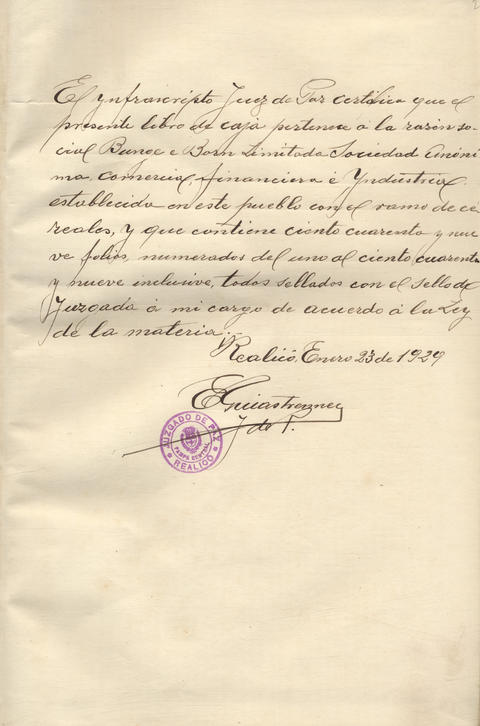 2
El ynfrascripto Juez de Paz certifica que el
presente libro de caja pertenece á la razón so-
cial Bunge e Born Limitada Sociedad Anóni
ma, Comercial, financiera é Yndustrial.
establecida en este pueblo con el ramo de ce-
reales, y que contiene ciento cuarenta y nue
ve folios, numerados del uno al ciento cuarenta
y nueve inclusive, todos sellados con el sello de
Juzgado á mi cargo de acuerdo á la Ley
de la materia.
Realicó, Enero 23 de 1929
J. de P.
JUZGADO DE PAZ
PAMPA CENTRAL
REALICÓ